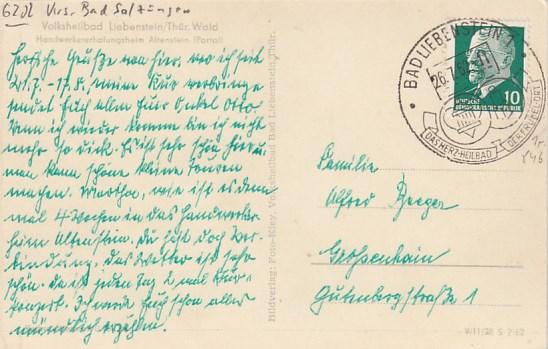 6202 Krs. Bad Salzungen
Volksheilbad Liebenstein/Thür. Wald
Handwerkererholungsheim Altenstein (Portal)
Herzliche Grüße von hier, wo ich seit
21.7. - 17.8. meine Kur verbringe
sendet Euch allen Eur Onkel Otto.
Wenn ich wieder komme bin ich nicht
mehr so dick. Es ist sehr schön hier u.
man kann schöne kleine Touren
machen. Martha, wie ist es denn
mal 4 Wochen in das Handwerker
heim Altenstein. Du hast doch Ver-
bindung. Das Wetter ist sehr
schön. da ist jeden Tag 2 mal Kur-
konzert. Ich werde Euch schon alles
mündlich erzählen.
Bildverlag: Foto-Kley, Volksheilbad Bad Liebenstein/Thür.
BAD LIEBENSTEIN
26.7.
DAS HERZ-HEILBAD
DEUTSCHE
DEMOKRATISCHE REPUBLIK
10
Familie
Alfred Berger
Großenhain
Gutenbergstraße 1
V/11/28 S-2-62